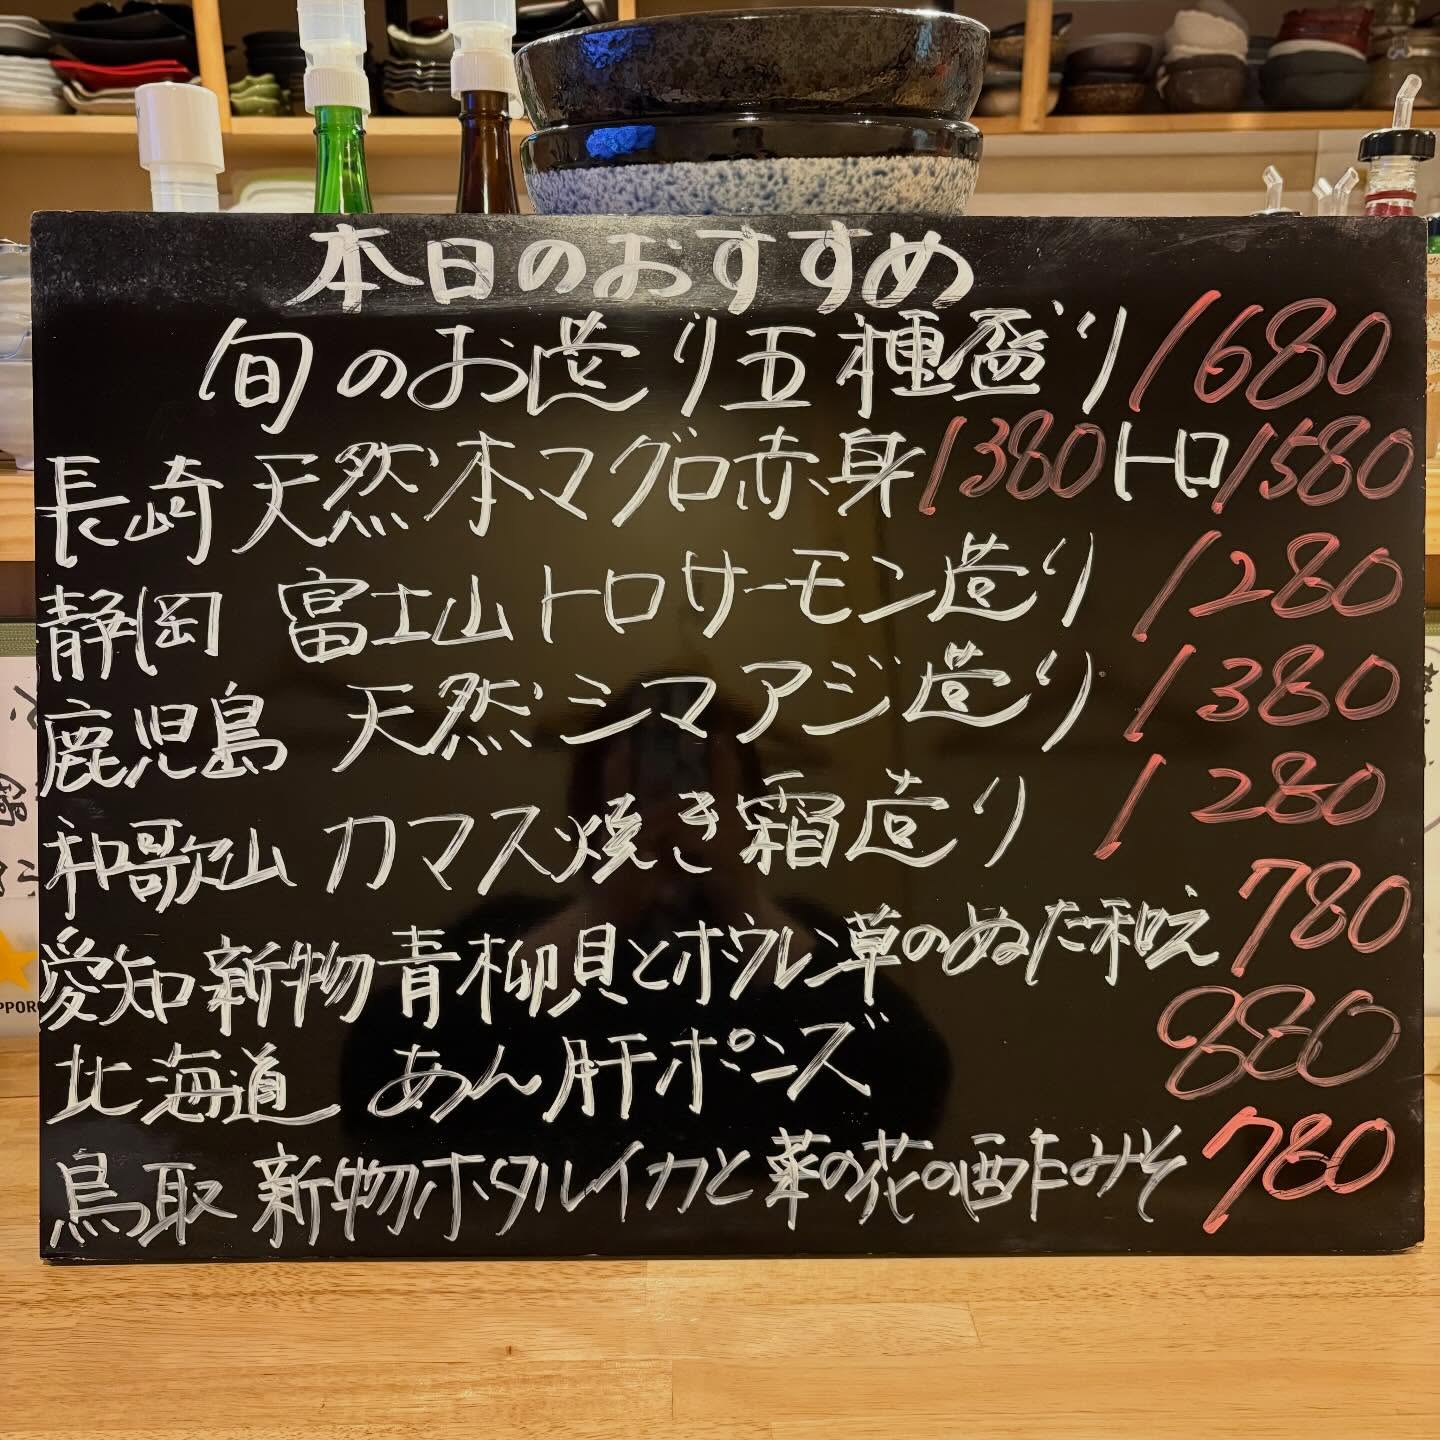 本日のおすすめ
旬のお造り五種盛り 1680
長崎 天然本マグロ赤身 1380 トロ 1580
静岡 富士山トロサーモン造り 1280
鹿児島 天然シマアジ造り 1380
和歌山 カマス焼き霜造り 1280
愛知 新物青柳貝とホウレン草のぬた和え 780
北海道 あん肝ポンズ 880
鳥取 新物ホタルイカと菜の花の酢みそ 780